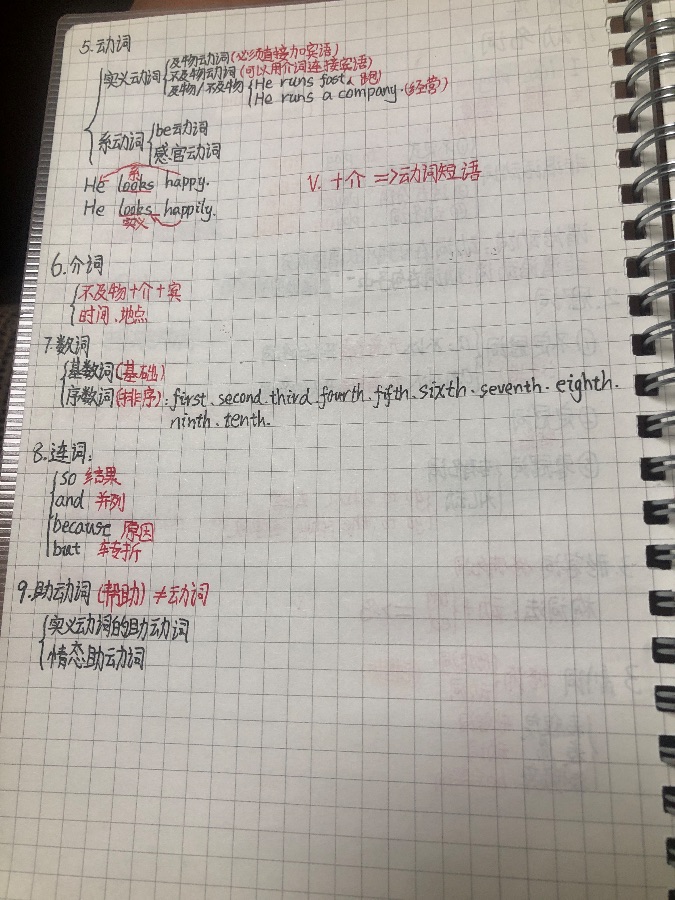 5.动词
实义动词
及物动词(必须直接加宾语)
不及物动词(可以用介词连接宾语)
及物/不及物
He runs fast.(跑)
He runs a company.(经营)
系动词
be动词
感官动词
系
He looks happy.
He looks happily.
实义
V.+介=>动词短语
6.介词
不及物+介+宾
时间、地点
7.数词
基数词(基础)
序数词(排序):first、second、third、fourth、fifth、sixth、seventh、eighth.
ninth、tenth.
8.连词:
so 结果
and 并列
because 原因
but 转折
9.助动词(帮助)≠动词
实义动词的助动词
情态助动词